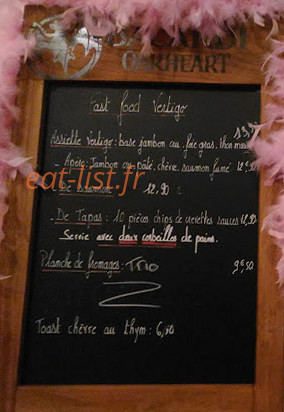 BACARDI
OAKHEART
Fast food Vertigo
13,90
Assiette Vertigo: base jambon cru, foie gras, thon mariné
- Apéro: Jambon cru, pâté, chèvre, saumon fumé 12,90
- De Saumon 12,90
eat-list.fr
- De Tapas: 10 pièces chips de crevettes sauces 12,90
Servie avec deux corbeilles de pains.
Planche de fromages: TRIO 9€,50
Toast chèvre au thym: 6,50